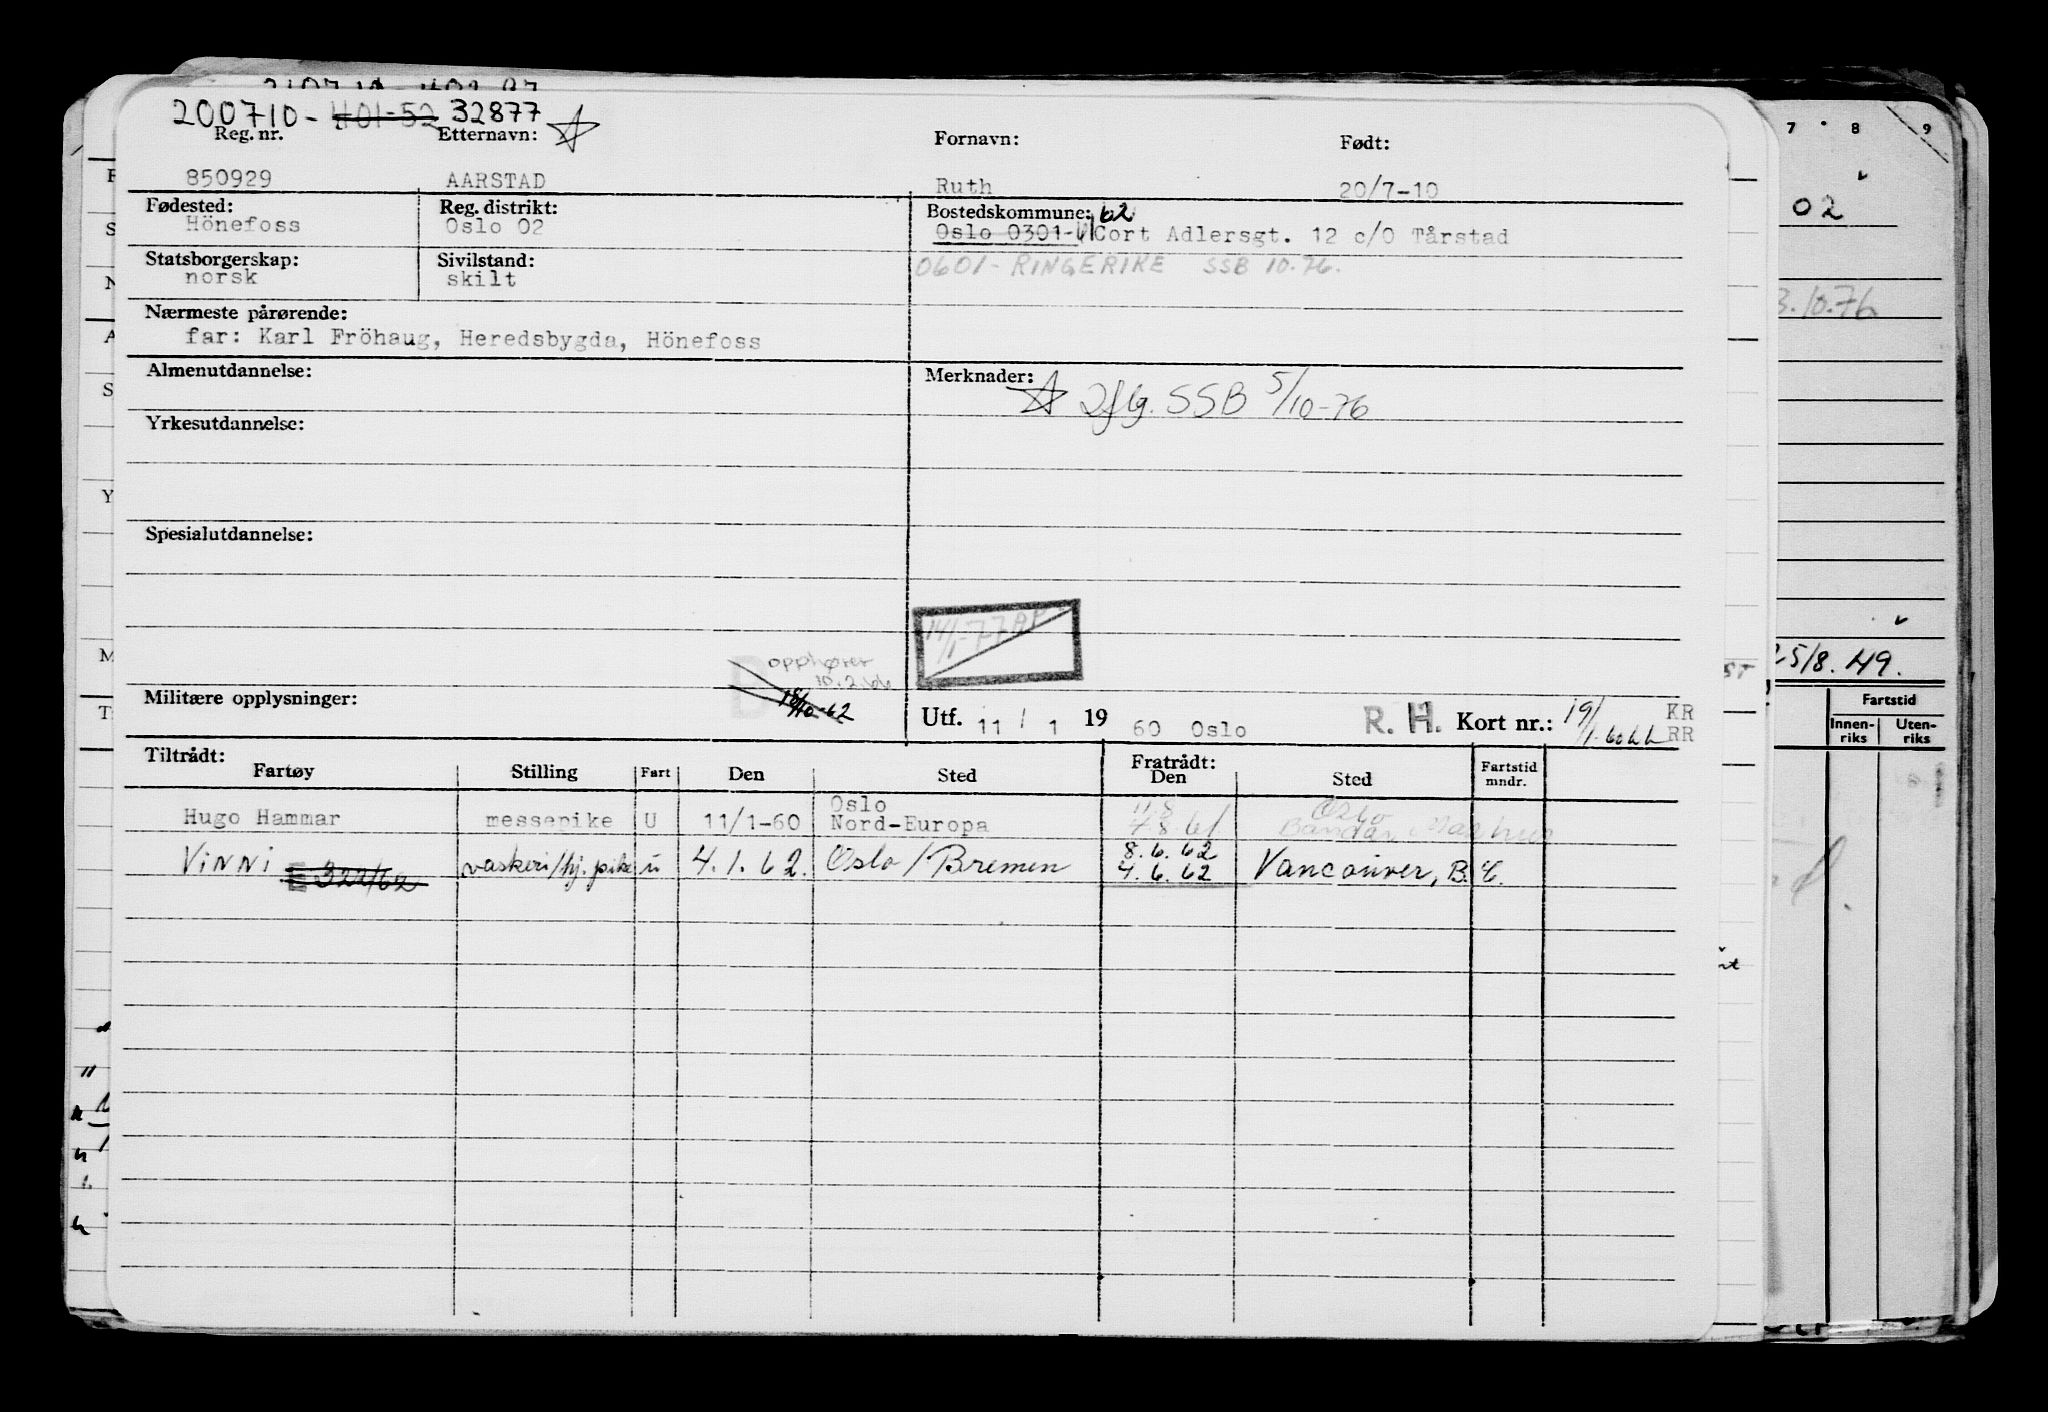 200710 - H01-52 32877
Reg. nr. Etternavn: Fornavn: Født:
850929 AARSTAD Ruth 20/7-10
Fødested: Reg. distrikt: Bostedskommune: 62
Hönefoss Oslo 02 Oslo 0301- Cort Adlersgt. 12 c/O Tårstad
Statsborgerskap: Sivilstand:
norsk skilt 0601- RINGERIKE SSB 10.76.
Nærmeste pårørende:
far: Karl Fröhaug, Heredsbygda, Hönefoss
Almenutdannelse: Merknader:
Iflg. SSB 5/10-76
Yrkesutdannelse:
Spesialutdannelse:
14/1-77
opphører
10.2.66
Militære opplysninger: 18/10-62
Utf. 11 / 1 19 60 Oslo R. H. Kort nr.: 19/1-60 KR
RR
Tiltrådt: Fratrådt:
Fartøy Stilling Fart Den Sted Den Sted Fartstid mndr.
Oslo Oslo
Hugo Hammar messepike U 11/1-60 Nord-Europa 7.8.61 Bandar
8.6.62
VINNI E 322/62 vaskeri/hj. pike u 4.1.62. Oslo / Bremen 4.6.62 Vancouver, B.C.
7 8 9
02
3.10.76
25/8.49.
Fartstid
Innen-riks Uten-riks